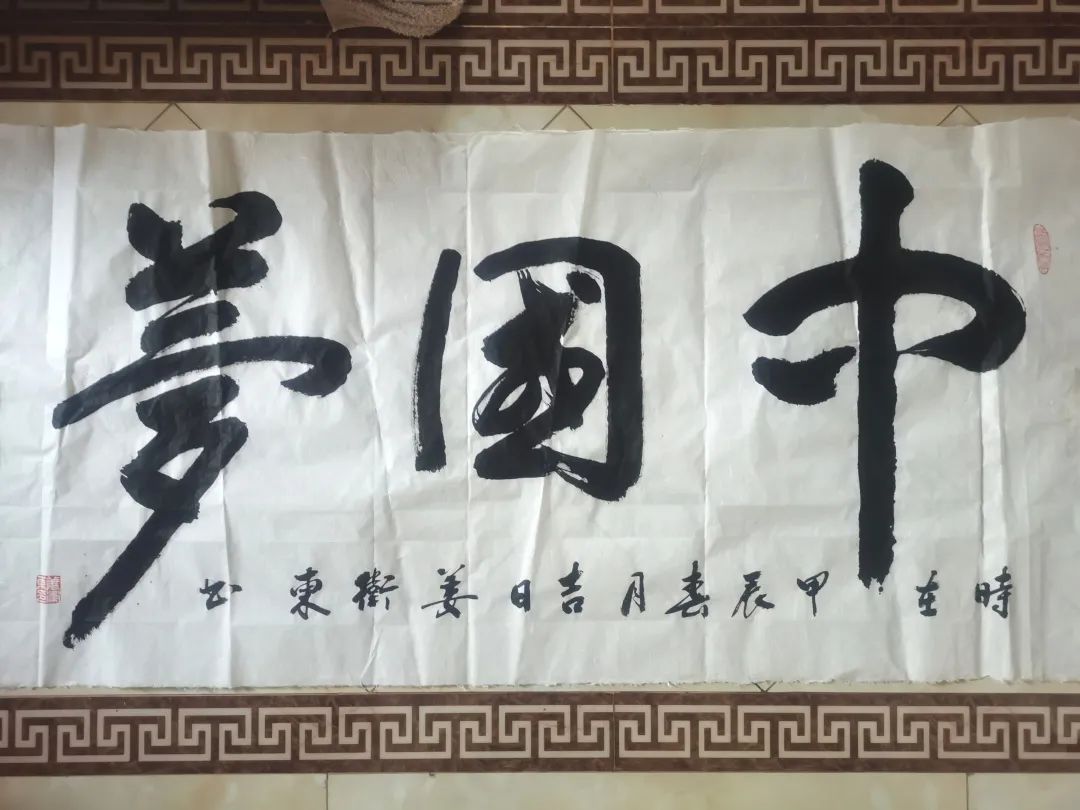 中國夢
時在甲辰春月吉日姜衛東书